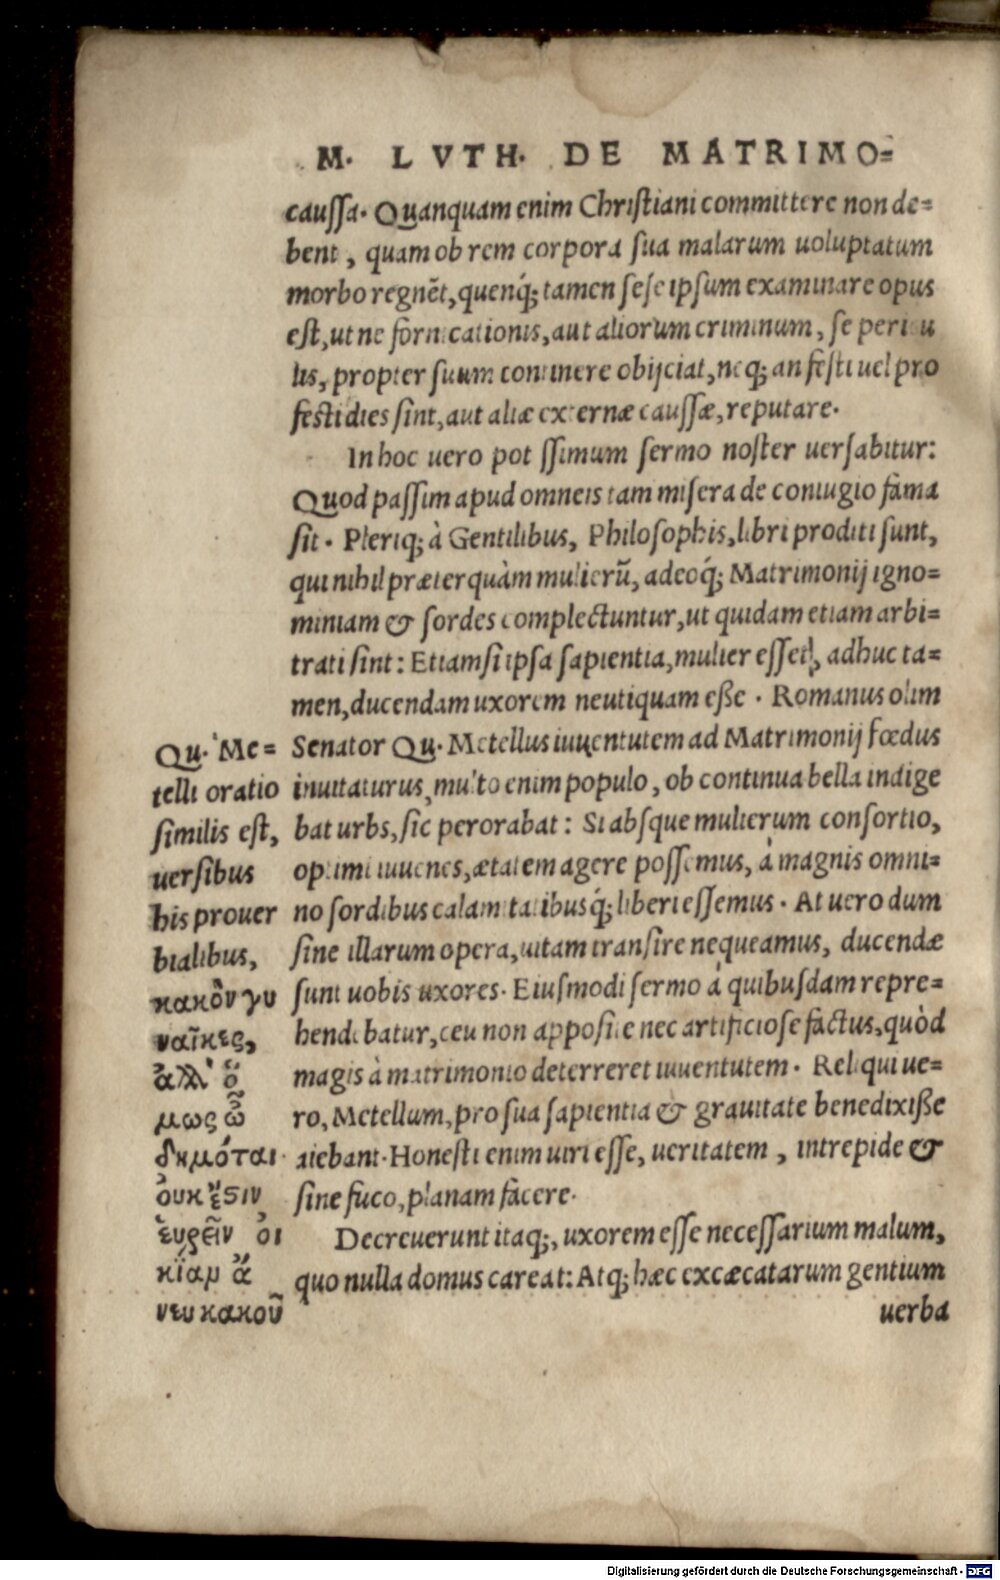 M. LVTH. DE MATRIMO=
caussa. Quanquam enim Christiani committere non de=
bent, quam ob rem corpora sua malarum uoluptatum
morbo regnēt, quenq́; tamen sese ipsum examinare opus
est, ut ne fornicationis, aut aliorum criminum, se pericu
lis, propter suum continere obijciat, neq; an festi uel pro
festi dies sint, aut aliæ externæ caussæ, reputare.
In hoc uero potissimum sermo noster uersabitur:
Quod passim apud omneis tam misera de coniugio fama
sit. Pleriq; à Gentilibus, Philosophis, libri proditi sunt,
qui nihil præterquàm mulierū, adeoq́; Matrimonij igno=
miniam & sordes complectuntur, ut quidam etiam arbi=
trati sint: Etiamsi ipsa sapientia, mulier esset, adhuc ta=
men, ducendam uxorem neutiquam eße. Romanus olim
Senator Qu. Metellus iuuentutem ad Matrimonij fœdus
inuitaturus, multo enim populo, ob continua bella indige
bat urbs, sic perorabat: Si absque mulierum consortio,
optimi iuuenes, ætatem agere possemus, à magnis omni=
no sordibus calamitatibusq́; liberi essemus. At uero dum
sine illarum opera, uitam transire nequeamus, ducendæ
sunt uobis uxores. Eiusmodi sermo à quibusdam repre=
hendebatur, ceu non apposite nec artificiose factus, quòd
magis à matrimonio deterreret iuuentutem. Reliqui ue=
ro, Metellum, pro sua sapientia & grauitate benedixiße
aiebant. Honesti enim uiri esse, ueritatem, intrepide &
sine fuco, planam facere.
Decreuerunt itaq;, uxorem esse necessarium malum,
quo nulla domus careat: Atq; hæc excæcatarum gentium
uerba
Qu. Me=
telli oratio
similis est,
uersibus
his prouer
bialibus,
κακὸν γυ
ναῖκες,
ἀλλ' ὅ
μως ὦ
δημόται.
ὀυκ ἔστιν
ἑυρεῖν οἰ
κίαμ ἄ
νευ κακοῦ
Digitalisierung gefördert durch die Deutsche Forschungsgemeinschaft - DFG